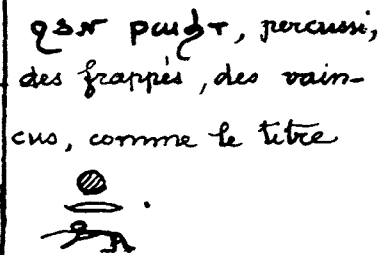 ϩⲁⲛ ⲣⲱϧⲧ, percussi,
des frappés, des vain-
cus, comme le titre
𓐍𓂋𓀒.